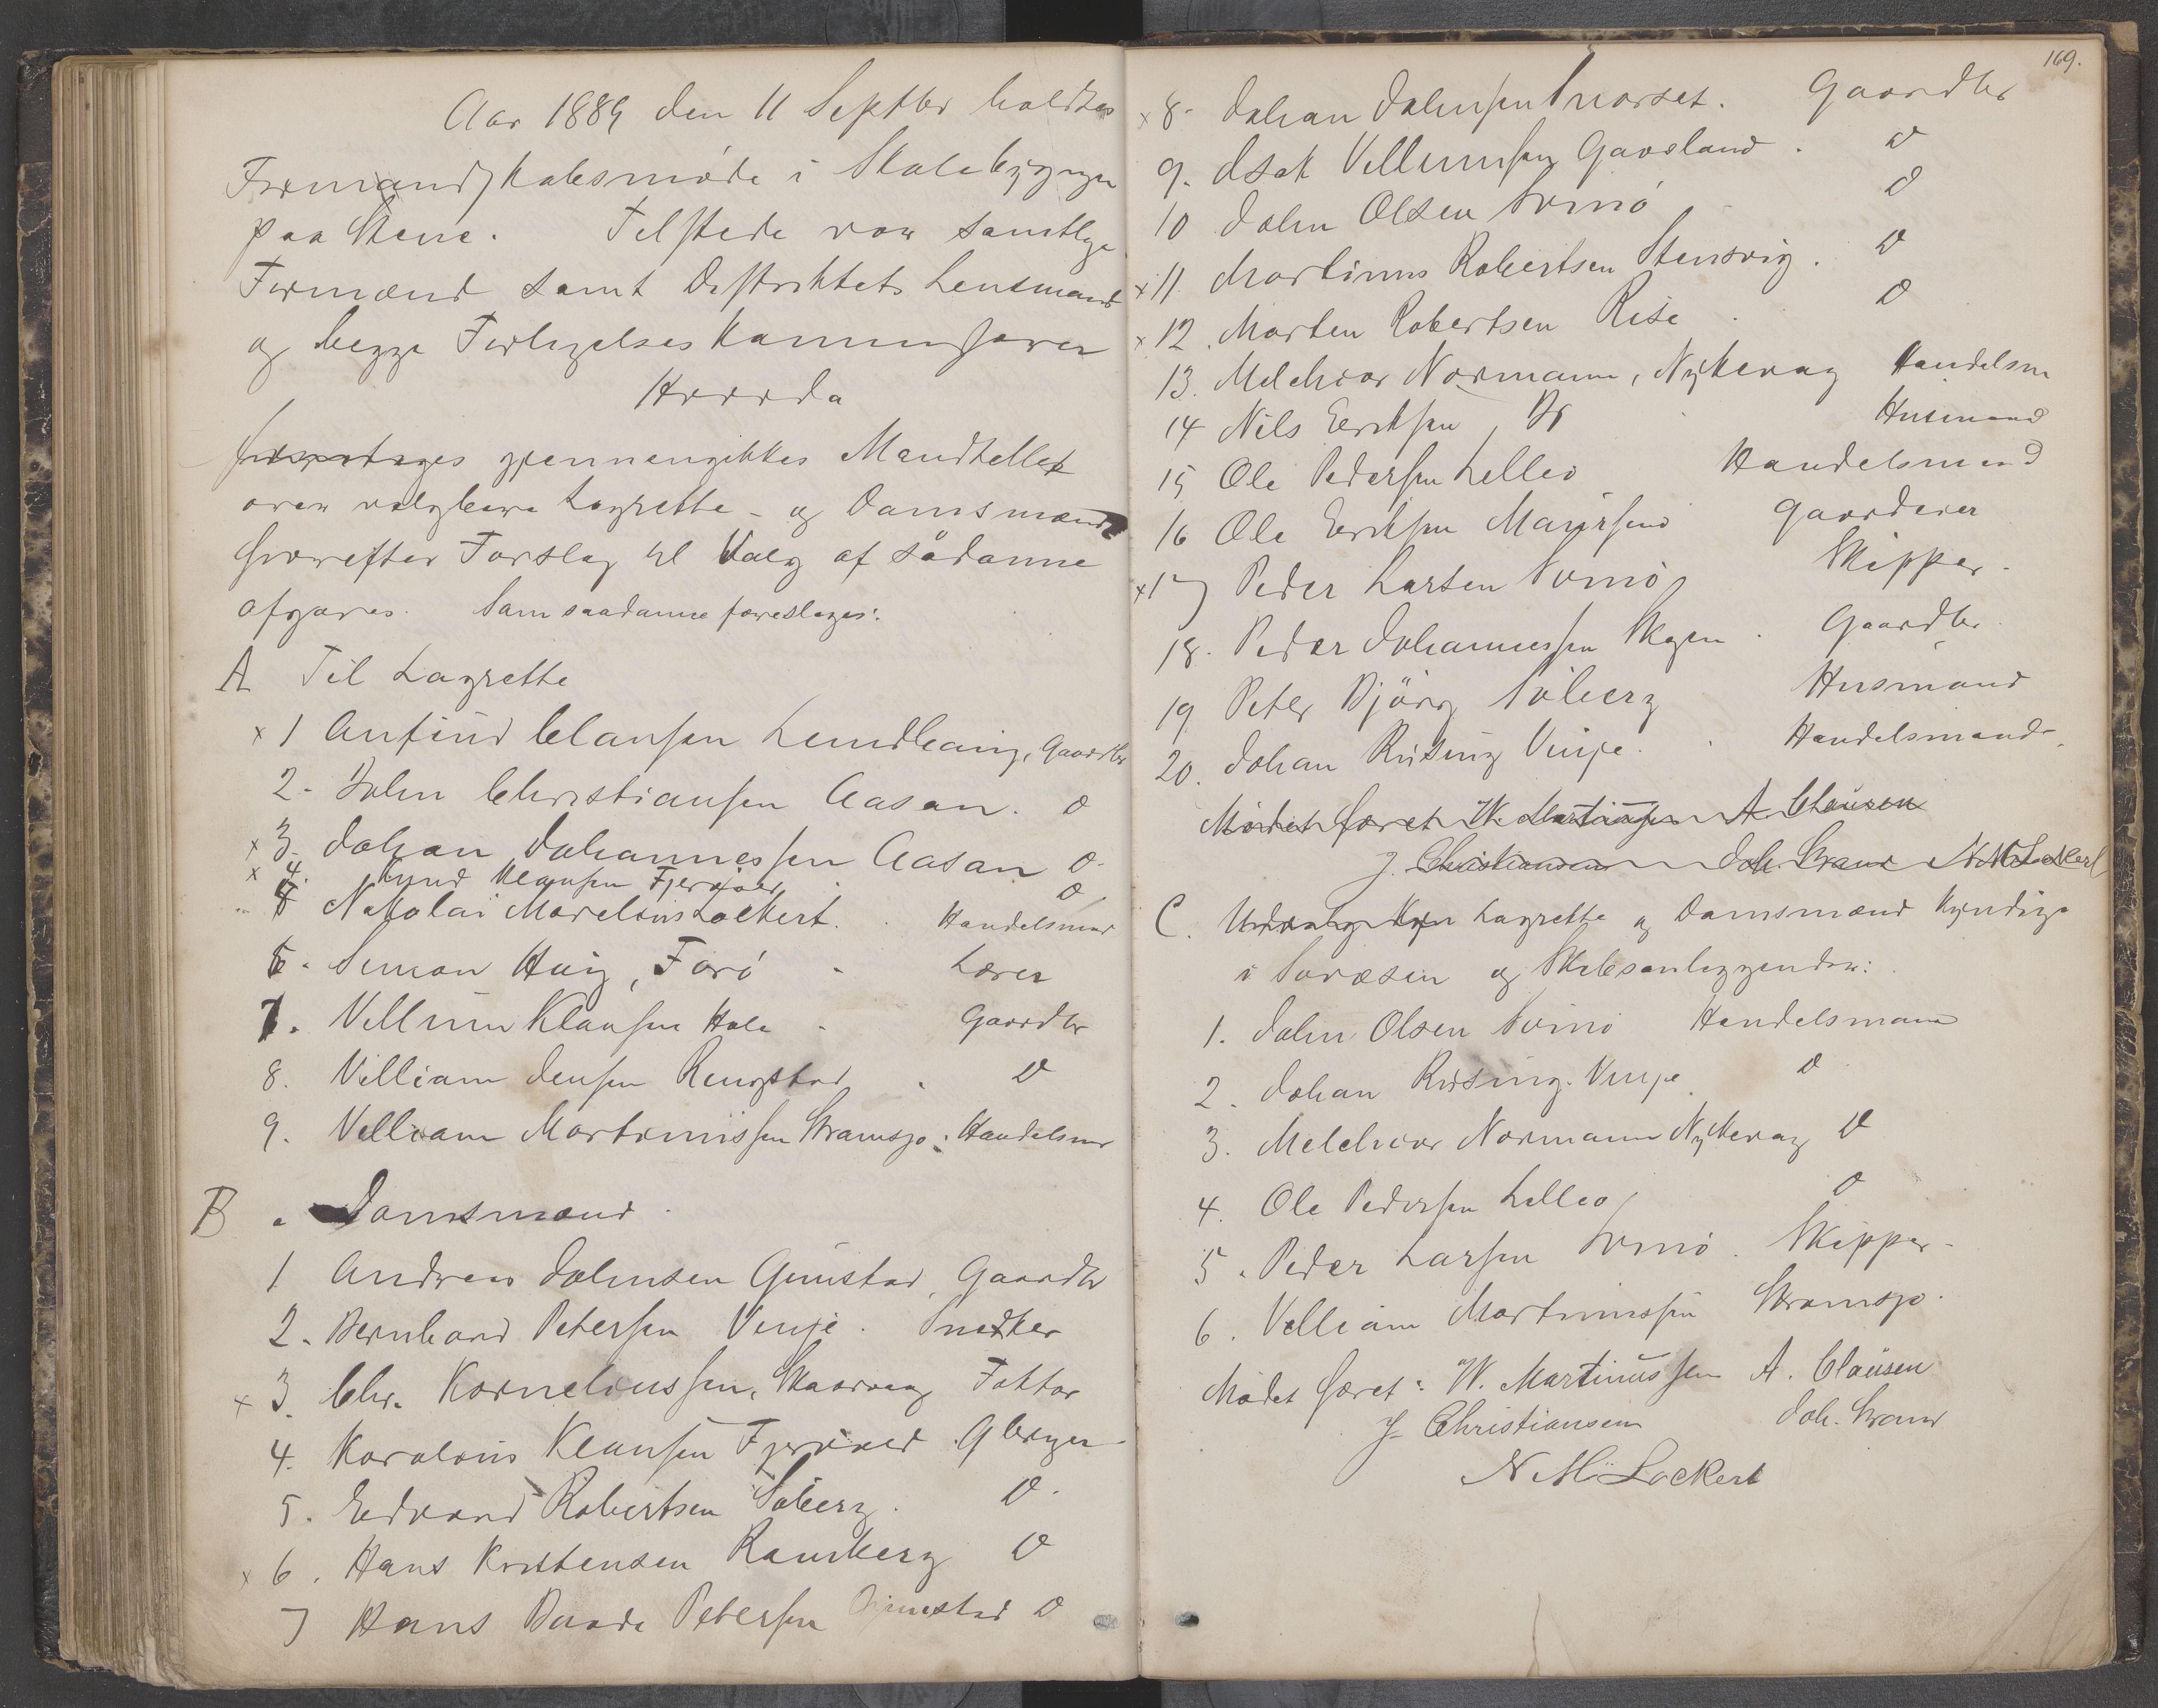 Aar 1889 den 11 Septbr holdtes
Formandskabsmøde i Skolebygngen
paa Steine. Tilstede var samtlige
Formænd samt Distriktets Lensmand
og begge Forligelseskommissærer
Hvorda
foretages gjennemgikkes Mandtallet
over valgbare Lagrette- og Domsmænd
hvorefter Forslag til Valg af sådanne
afgaves. Som saadanne foreslages:
A Til Lagrette
x 1 Anfind Clausen Lundhaug, Gaardbr
2. John Christiansen Aasan. D
x 3. Johan Johannessen Aasan D
x 4. Knud Klausen Fjervoll D
5 Nikolai Marelius Lockert. Handelsmd
6. Simon Haig, Farö Lærer
7. Villum Klausen Hole Gaardbr
8. Villiam Jensen Ringstad D
9. Villiam Martinussen Straumsjø. Handelsm
B " Domsmænd
1 Andreas Johnsen Guustad, Gaardbr
2. Bernhard Petersen Vinje. Snedker
x 3. Chr. Korneliussen, Skaarvaag Faktor
4. Karolius Klausen Fjervoll Gbruger
5. Edvard Robertsen Söberg. D.
x 6. Hans Kristensen Ramberg D
7 Hans Baade Petersen Guustad D
169.
x 8. Johan Johnsen Snorset. Gaardbr
9. Isak Villumsen Gaasland. D
10 John Olsen Svinö D
x 11 Martinus Robertsen Steinsvig. D
x 12. Morten Robertsen Rise D
13. Melchior Normann, Nykvaag Handelsm
14 Nils Eriksen, D Husmand
15 Ole Pedersen Lilleö Handelsmand
16 Ole Eriksen Gaardeier
x 17 Peder Larsen Svinö Skipper.
18. Peder Johannessen Skogen. Gaardbr
19 Peter Björg Söberg Husmand
20. Johan Rusing Vinje. Handelsmand
Mødet hævet W. Martinussen A. Clausen
J. Christiansen Joh. Straus N. M. Lockert
C. Lagrette og Domsmænd kyndige
i Søvæsen og Skibsanliggender:
1. John Olsen Svinö Handelsmand
2. Johan Rusing. Vinje D
3. Melchior Normann Nykvaag D
4. Ole Pedersen Lilleö D
5. Peder Larsen Svinö. Skipper
6. Villiam Martinussen Straumsjø.
Mødet hævet: W. Martinussen A. Clausen
J. Christiansen Joh. Straus
N M Lockert